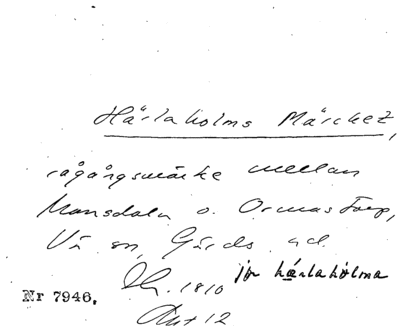 Härlaholms Märckez,
rågångsmärke mellan
Mansdala o. Ormastorp,
Vä sn, Gärds hd.
Lm. 1810 jfr härlaholma
Akt 12
Nr 7946.